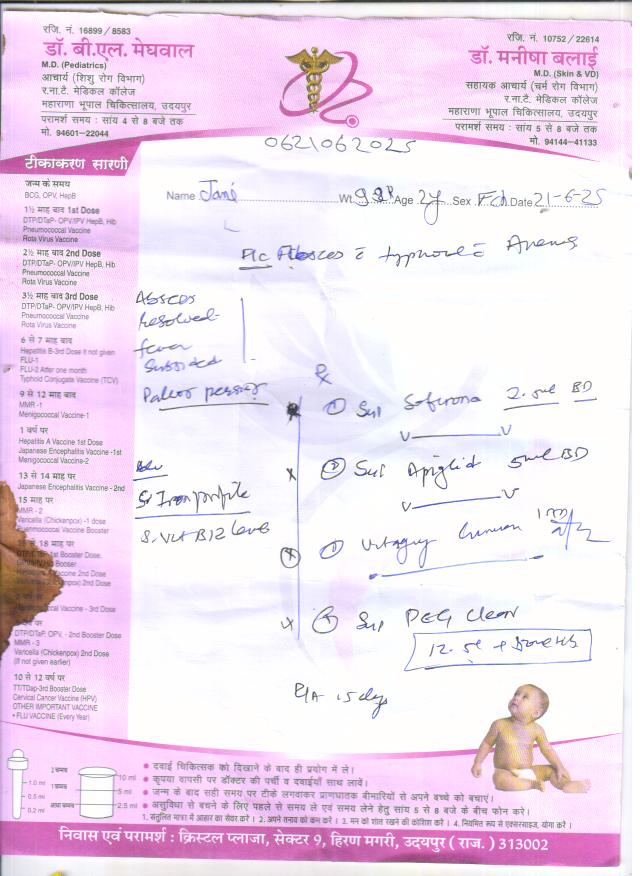 रजि. नं. 16899 / 8583
डॉ. बी.एल. मेघवाल
M.D. (Pediatrics)
आचार्य (शिशु रोग विभाग)
र.ना.टै. मेडिकल कॉलेज
महाराणा भूपाल चिकित्सालय, उदयपुर
परामर्श समय : सांय 4 से 8 बजे तक
मो. 94601-22044
रजि. नं. 10752 / 22614
डॉ. मनीषा बलाई
M.D. (Skin & VD)
सहायक आचार्य (चर्म रोग विभाग)
र.ना.टै. मेडिकल कॉलेज
महाराणा भूपाल चिकित्सालय, उदयपुर
परामर्श समय : सांय 5 से 8 बजे तक
मो. 94144-41133
टीकाकरण सारणी
Name Wt. Age 2y Sex Date 21-6-25
जन्म के समय
BCG, OPV, HepB
1½ माह बाद 1st Dose
DTP/DTaP- OPV/IPV HepB, Hib
Pneumococcal Vaccine
Rota Virus Vaccine
2½ माह बाद 2nd Dose
DTP/DTaP- OPV/IPV HepB, Hib
Pneumococcal Vaccine
Rota Virus Vaccine
3½ माह बाद 3rd Dose
DTP/DTaP- OPV/IPV HepB, Hib
Pneumococcal Vaccine
Rota Virus Vaccine
6 से 7 माह बाद
Hepatitis B-3rd Dose if not given
FLU-1
FLU-2 After one month
Typhoid Conjugate Vaccine (TCV)
9 से 12 माह बाद
MMR -1
Menigococcal Vaccine-1
1 वर्ष पर
Hepatitis A Vaccine 1st Dose
Japanese Encephalitis Vaccine -1st
Menigococcal Vaccine-2
13 से 14 माह पर
Japanese Encephalitis Vaccine - 2nd
15 माह पर
MMR - 2
Varicella (Chickenpox) -1 dose
Pneumococcal Vaccine Booster
18 माह पर
1st Booster Dose,
Vaccine 2nd Dose
2nd Dose
Vaccine - 3rd Dose
DTP/DTaP, OPV, - 2nd Booster Dose
MMR - 3
Varicella (Chickenpox) 2nd Dose
(If not given earlier)
10 से 12 वर्ष पर
TT/TDap-3rd Booster Dose
Cervical Cancer Vaccine (HPV)
OTHER IMPORTANT VACCINE
• FLU VACCINE (Every Year)
Abscess
Resolved
fever
Subsided
S. Iron profile
S. Vit B12 level
① Syp 2.5ml BD
② Syp 5ml BD
④ Syp PEG Clear
15 days
1.0 ml
0.5 ml
0.2 ml
2 चम्मच
1 चम्मच
आधा चम्मच
10 ml
5 ml
2.5 ml
• दवाई चिकित्सक को दिखाने के बाद ही प्रयोग में ले।
• कृपया वापसी पर डॉक्टर की पर्ची व दवाईयाँ साथ लावें।
• जन्म के बाद सही समय पर टीके लगवाकर प्राणघातक बीमारियों से अपने बच्चे को बचाएं।
• असुविधा से बचने के लिए पहले से समय ले एवं समय लेने हेतु सांय 5 से 8 बजे के बीच फोन करे।
1. संतुलित मात्रा में आहार का सेवन करें । 2. अपने तनाव को कम करें । 3. मन को शांत रखने की कोशिश करें । 4. नियमित रूप से एक्सरसाइज, योगा करें ।
निवास एवं परामर्श : क्रिस्टल प्लाजा, सेक्टर 9, हिरण मगरी, उदयपुर ( राज. ) 313002